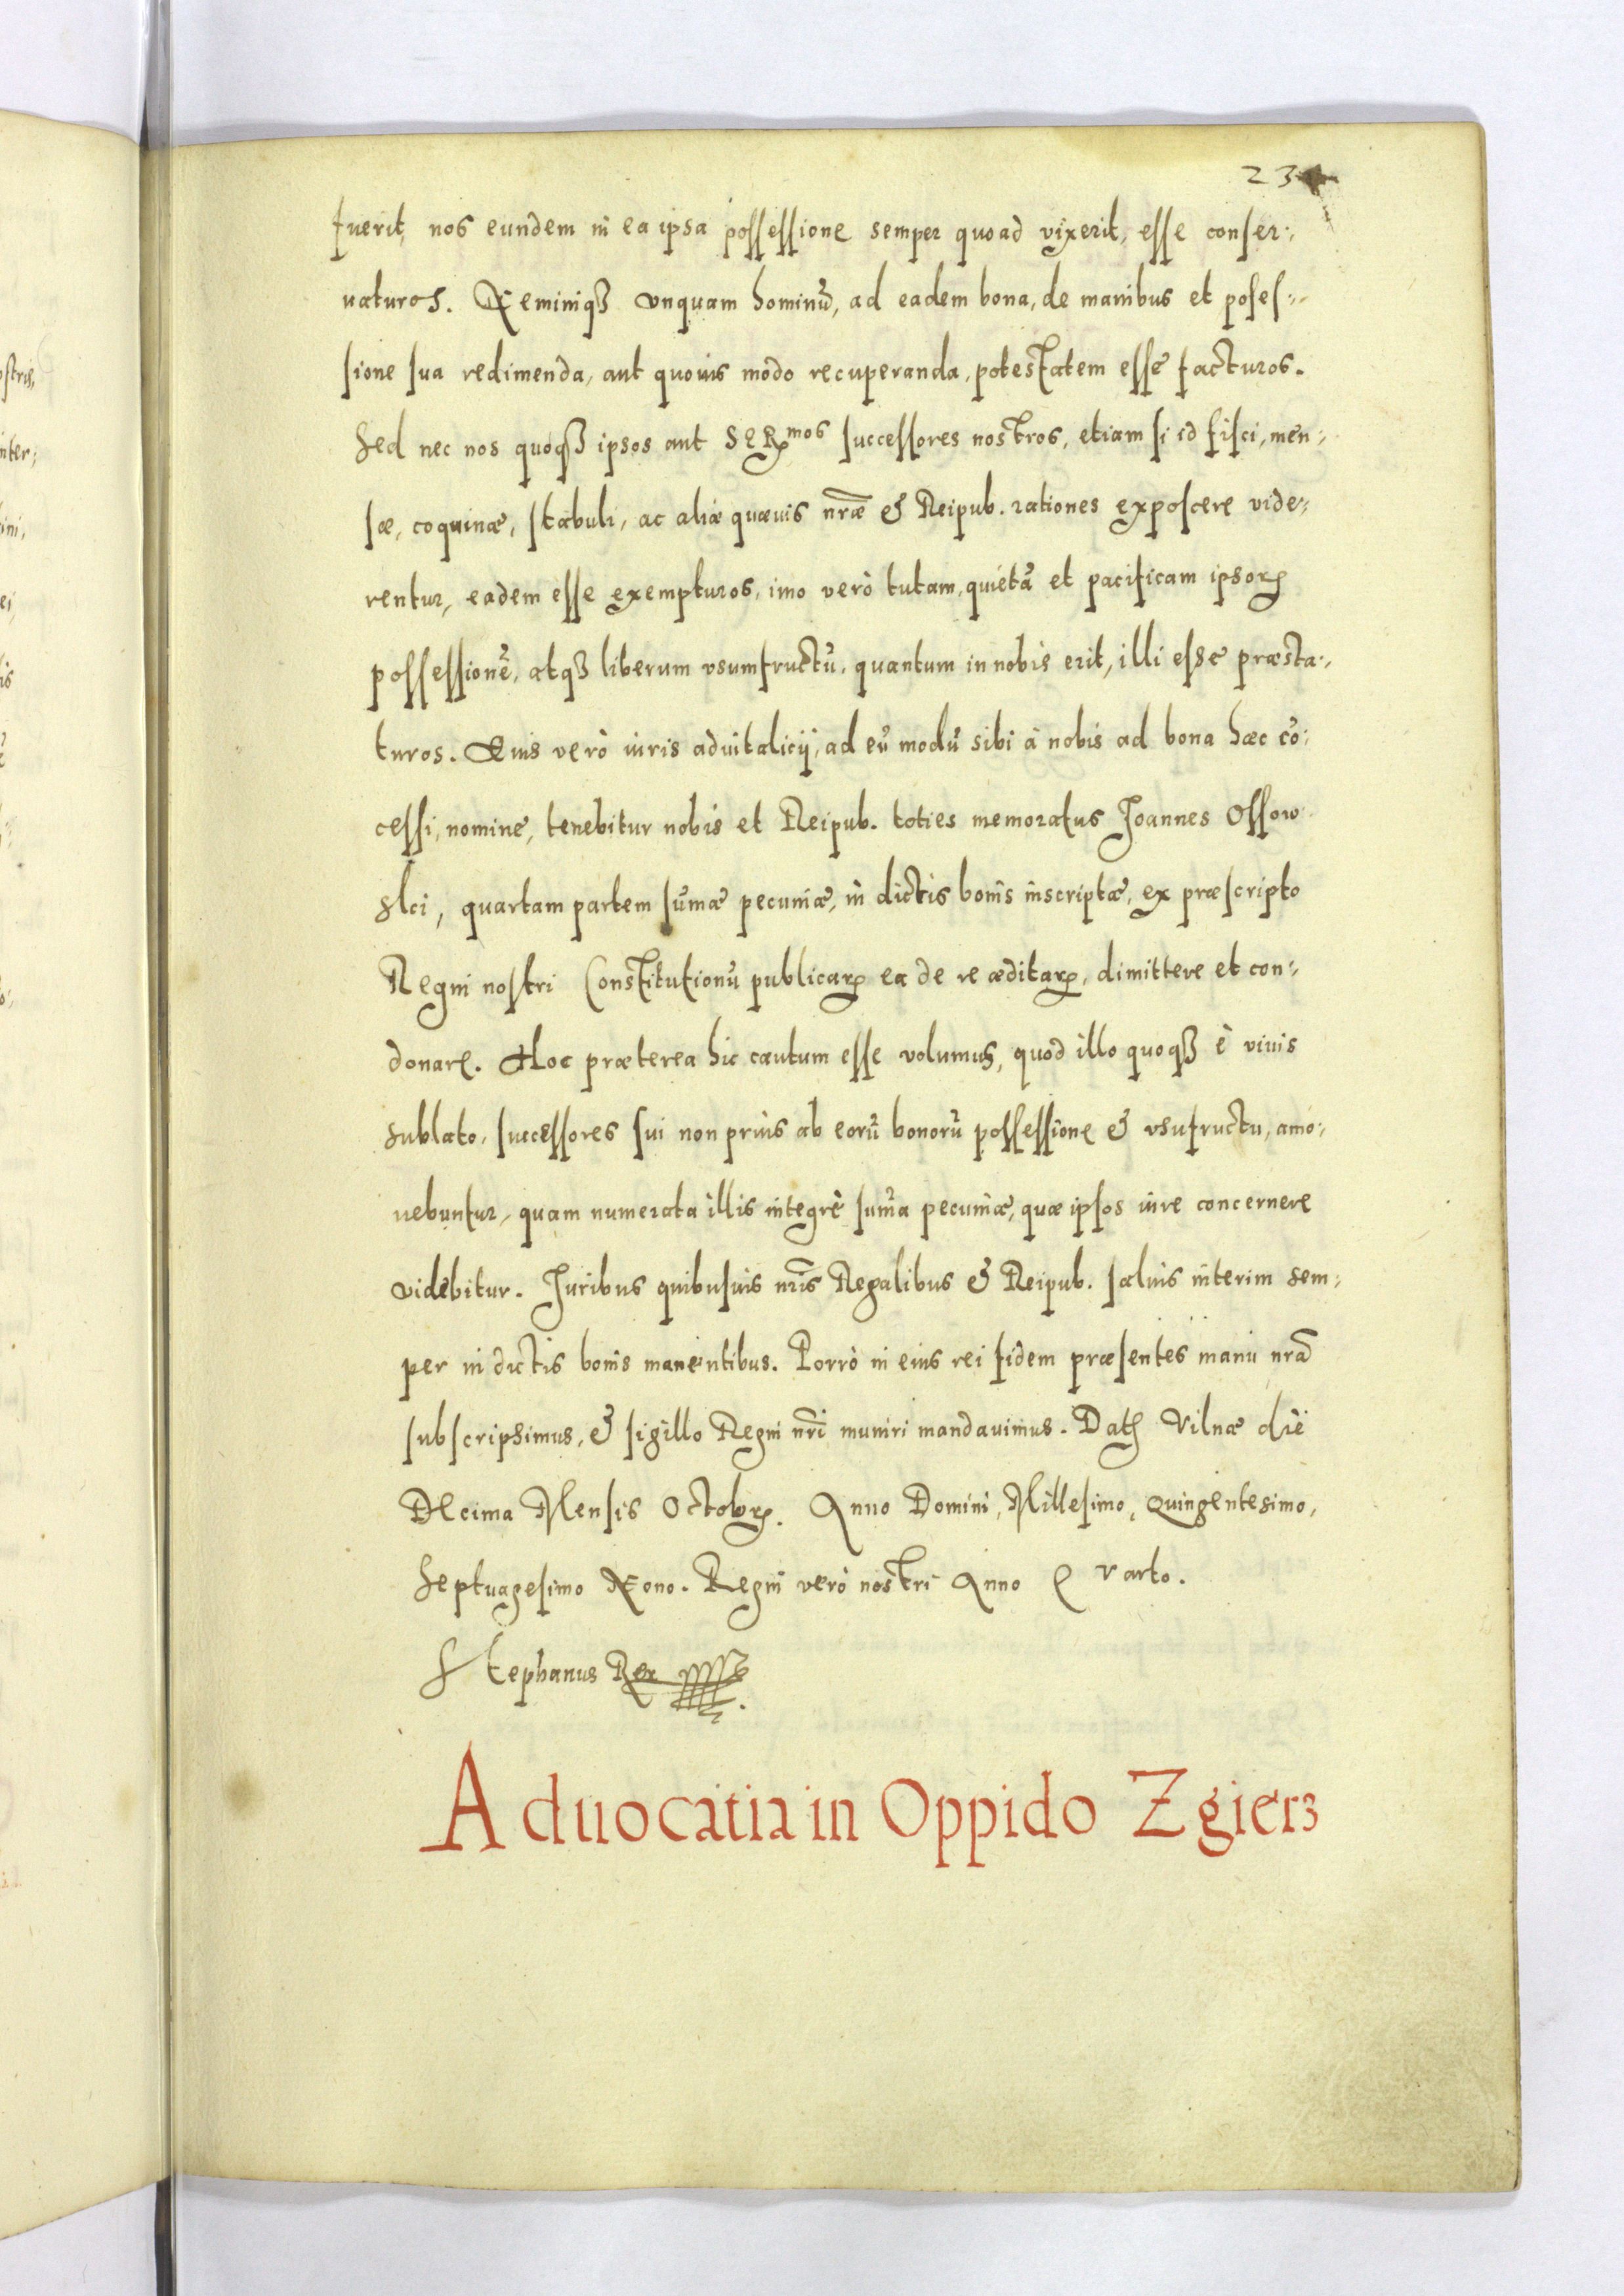 23
fuerit, nos eundem in ea ipsa possessione semper quoad vixerit, esse conser:,
uaturos. Neminiqȝ vnquam hominũ, ad eadem bona, de manibus et poses:,
sione sua redimenda, aut quouis modo recuperanda, potestatem esse facturos.
Sed nec nos quoqȝ ipsos aut SERmos successores nostros, etiam si id fisci, men:,
sæ, coquinæ, stabuli, ac aliæ quæuis nr̃æ & Reipub. rationes exposcere vide:,
rentur, eadem esse exempturos, imo verò tutam, quietã et pacificam ipsorꝝ
possessionẽ, atqȝ liberum vsumfructũ, quantum in nobis erit, illi esse præsta:,
turos. Quis verò iuris aduitalicij, ad eũ modũ sibi à nobis ad bona hæc cõ:,
cessi, nomine, tenebitur nobis et Reipub. toties memoratus Joannes Ossow
ski, quartam partem sũmæ pecuniæ, in dictis bonis inscriptæ, ex præscripto
Regni nostri Constitutionũ publicarꝝ ea de re æditarꝝ, dimittere et con:,
donare. Hoc præterea hic cautum esse volumus, quod illo quoqȝ è viuis
sublato, successores sui non prius ab eorũ bonorũ possessione & vsufructu, amo:,
uebuntur, quam numerata illis integrè sum̃a pecuniæ, quæ ipsos iure concernere
videbitur. Juribus quibusuis nr̃is Regalibus & Reipub. saluis interim sem:,
per in dictis bonis manentibus. Porrò in eius rei fidem præsentes manu nr̃a
subscripsimus, & sigillo Regni nr̃i muniri mandauimus. Datꝭ Vilnæ die
Decima Mensis Octobrꝭ. Anno Domini, Millesimo, Quingentesimo,
Septuagesimo Nono. Regni verò nostri Anno Qvarto.
Stephanus Rex
Aduocatia in Oppido Zgierz